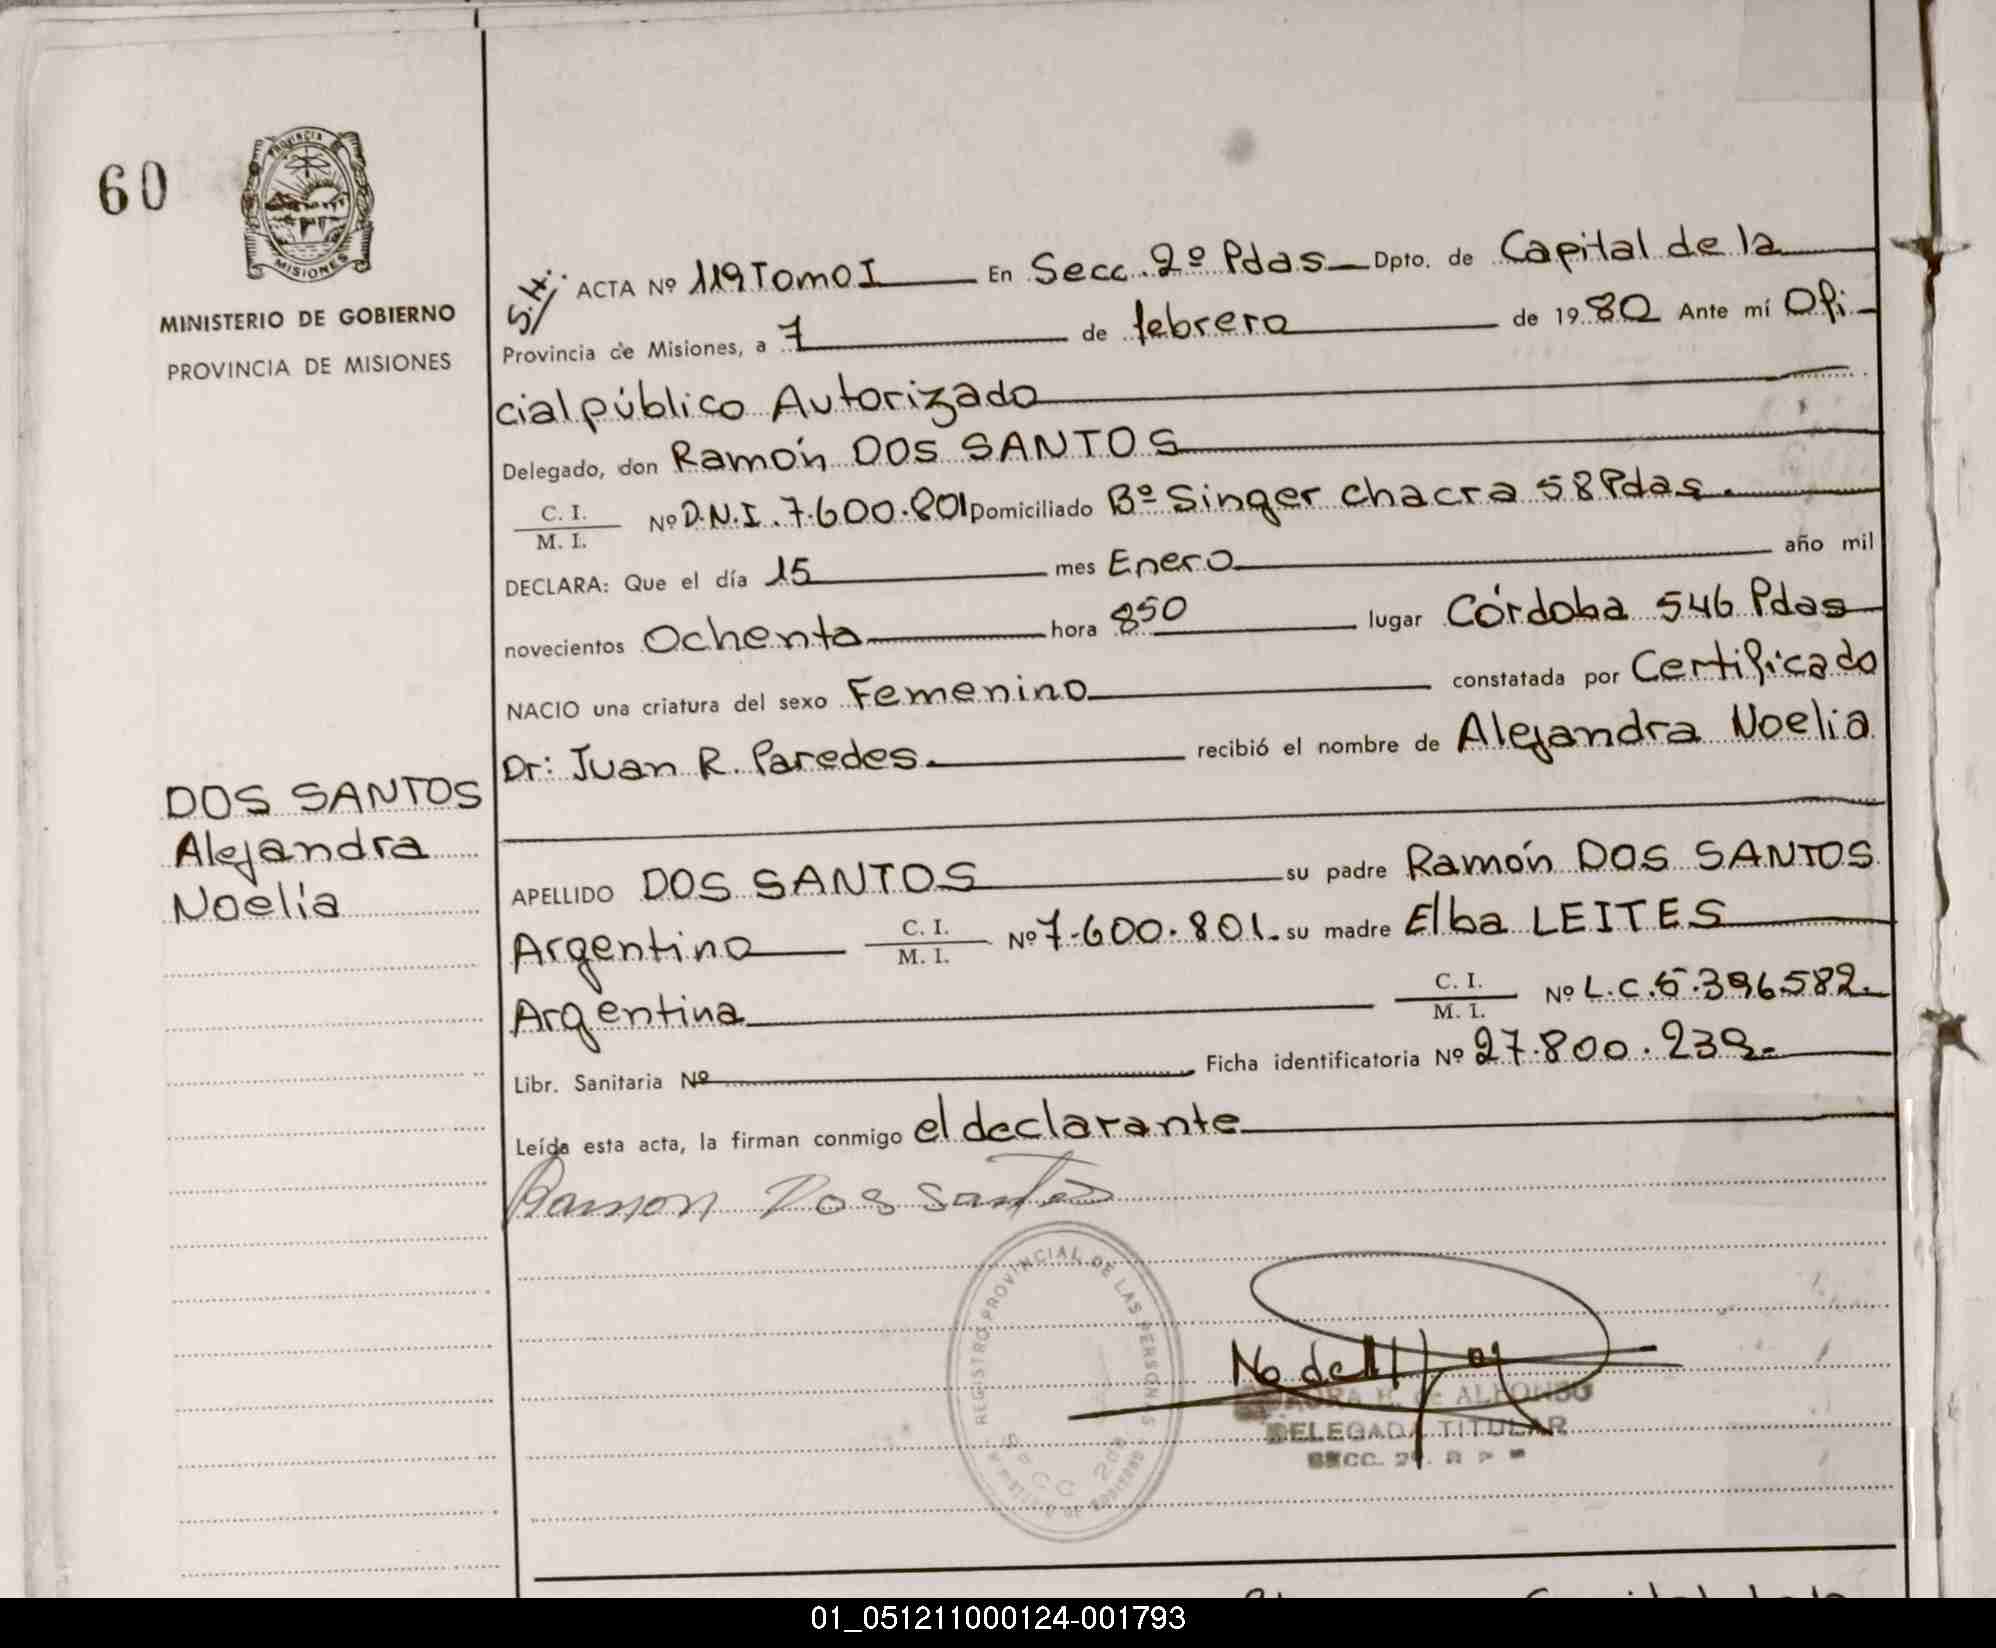 60
PROVINCIA DE
MISIONES
MINISTERIO DE GOBIERNO
PROVINCIA DE MISIONES
S.H.
ACTA Nº 119 Tomo I En Secc. 2º Pdas Dpto. de Capital de la
Provincia de Misiones, a 7 de febrero de 1980 Ante mí Ofi-
cial público Autorizado
Delegado, don Ramón DOS SANTOS
C. I.
M. I. Nº D.N.I. 7.600.801 Domiciliado Bº Singer chacra 58 Pdas.
DECLARA: Que el día 15 mes Enero año mil
novecientos Ochenta hora 850 lugar Córdoba 546 Pdas
NACIO una criatura del sexo Femenino constatada por Certificado
Dr: Juan R. Paredes. recibió el nombre de Alejandra Noelia
DOS SANTOS
Alejandra
Noelia
APELLIDO DOS SANTOS su padre Ramón DOS SANTOS
Argentino C. I. M. I. Nº 7.600.801. su madre Elba LEITES
Argentina C. I. M. I. Nº L.C. 5.396.582.
Libr. Sanitaria Nº Ficha identificatoria Nº 27.800.239.
Leída esta acta, la firman conmigo el declarante
Ramon Dos Santos
REGISTRO PROVINCIAL DE LAS PERSONAS
SECC 2da
H. de ALFONSO
DELEGADA TITULAR
SECC. 2ª.
01_051211000124-001793